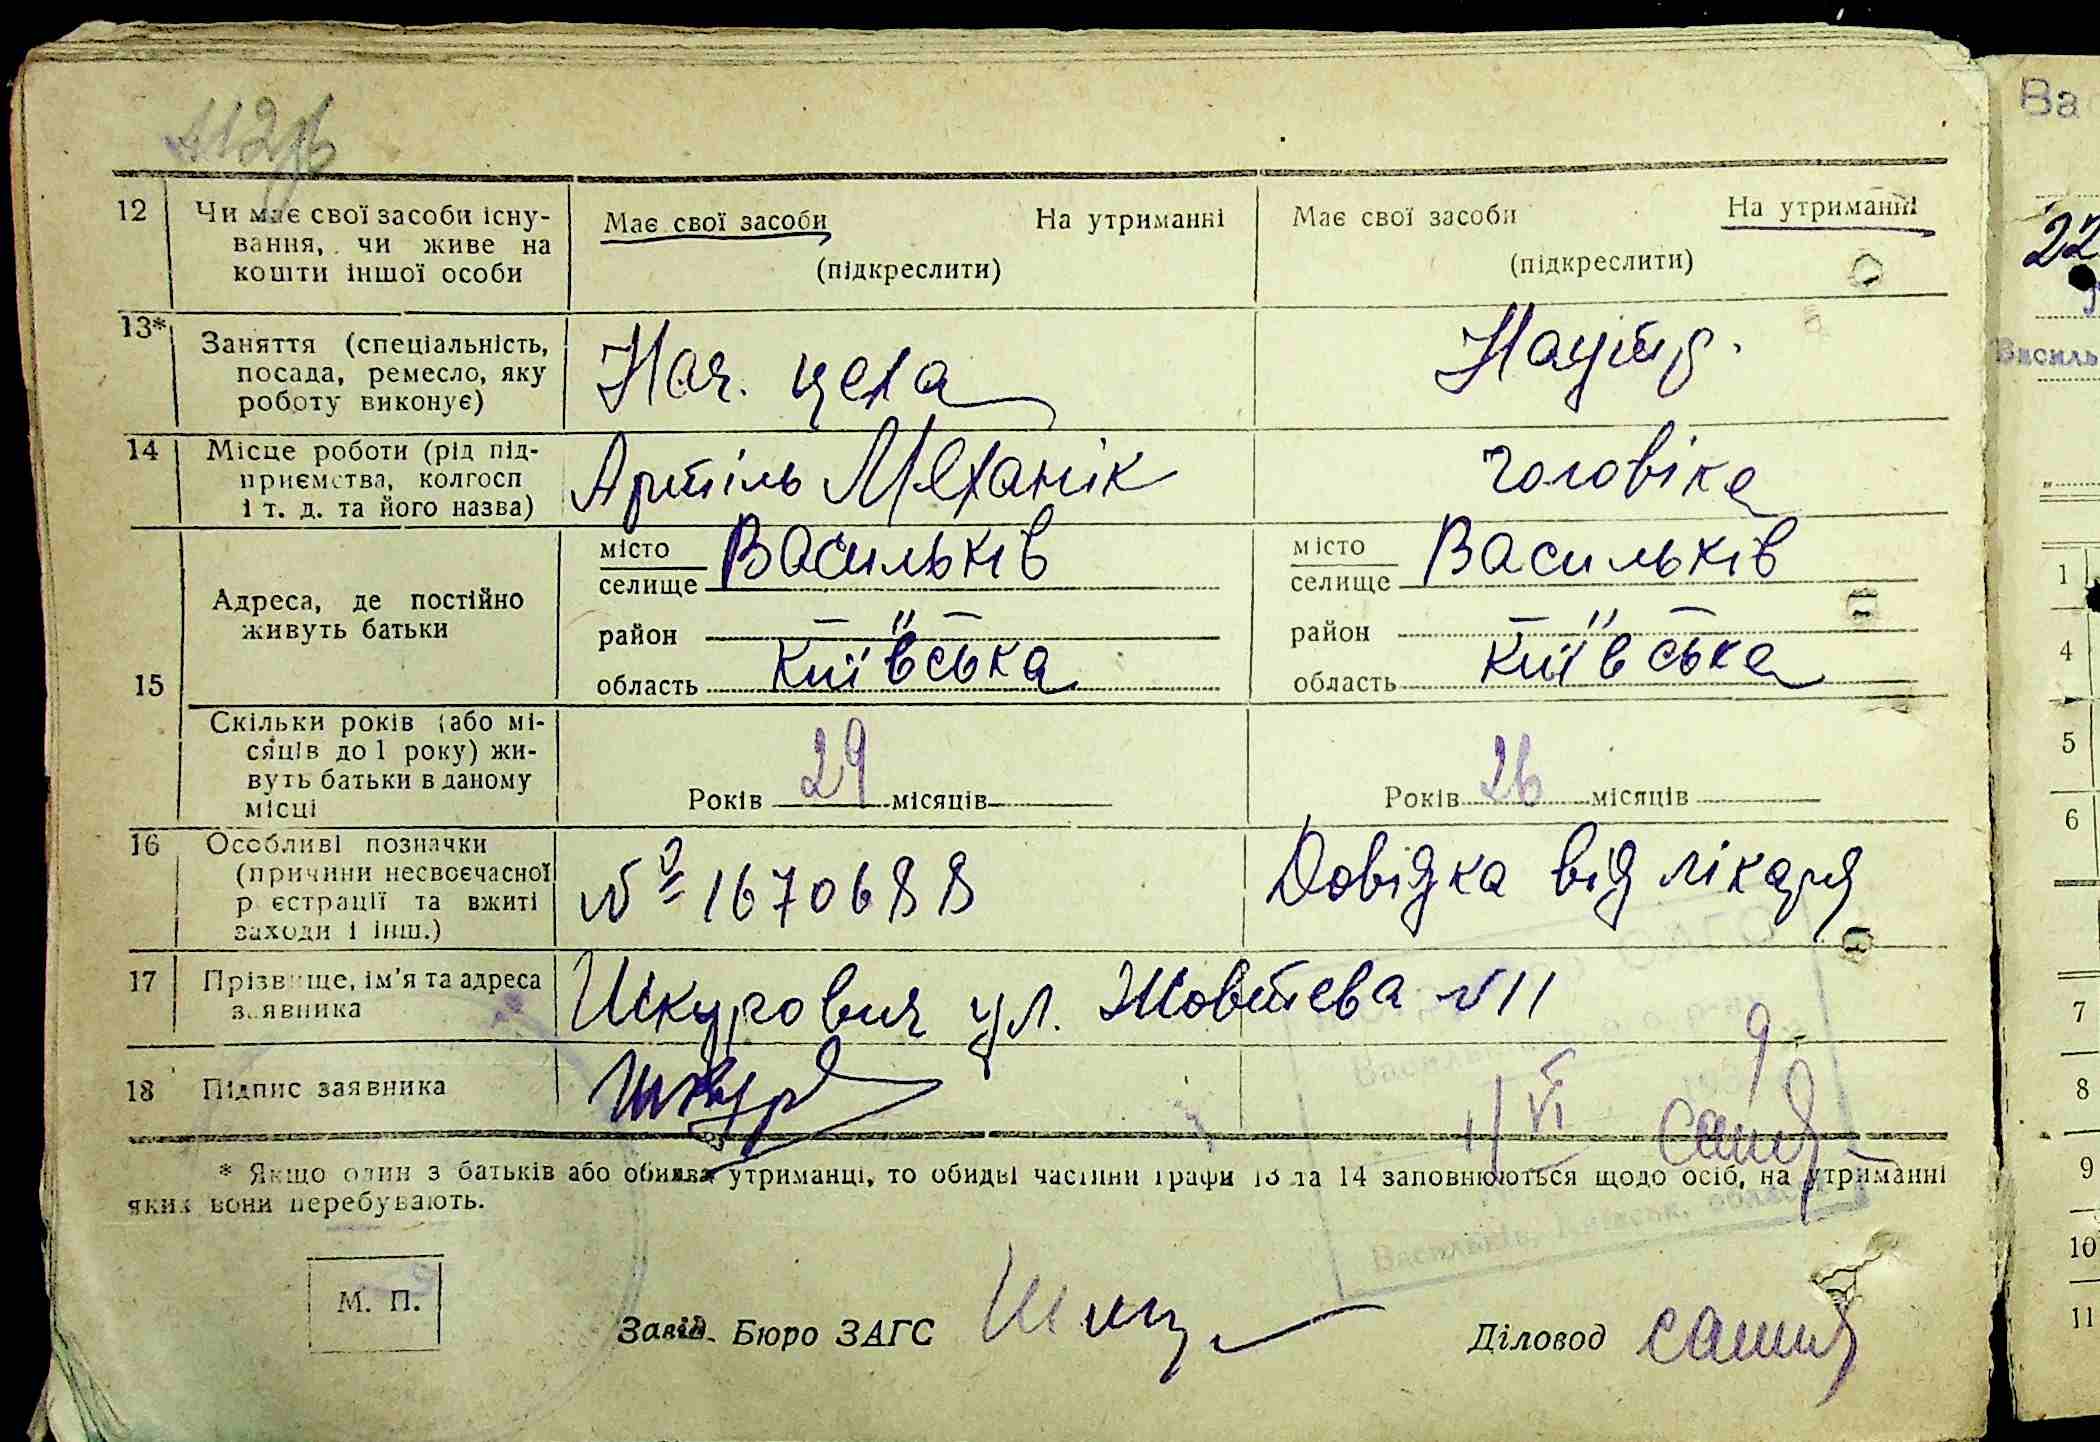 12 Чи має свої засоби існу-
вання, чи живе на
кошти іншої особи
Має свої засоби На утриманні
(підкреслити)
Має свої засоби На утриманні
(підкреслити)
13* Заняття (спеціальність,
посада, ремесло, яку
роботу виконує)
Нач. цеха
На утр.
14 Місце роботи (рід під-
приємства, колгосп
і т. д. та його назва)
Артіль Механік
чоловіка
15 Адреса, де постійно
живуть батьки
місто
селище Васильків
район — " —
область Київська
місто
селище Васильків
район — " —
область Київська
Скільки років (або мі-
сяців до 1 року) жи-
вуть батьки в даному
місці
Років 29 місяців
Років 26 місяців
16 Особливі позначки
(причини несвоєчасної
реєстрації та вжиті
заходи і інш.)
№ 1670688
Довідка від лікаря
17 Прізвище, ім'я та адреса
заявника
ул. Жовтнева № 11
18 Підпис заявника
VI
* Якщо один з батьків або обидва утриманці, то обидві частини графи 13 та 14 заповнюються щодо осіб, на утриманні
яких вони перебувають.
М. П.
Завід. Бюро ЗАГС
Діловод
Ва
22
Василь
1
4
5
6
7
8
9
10
11